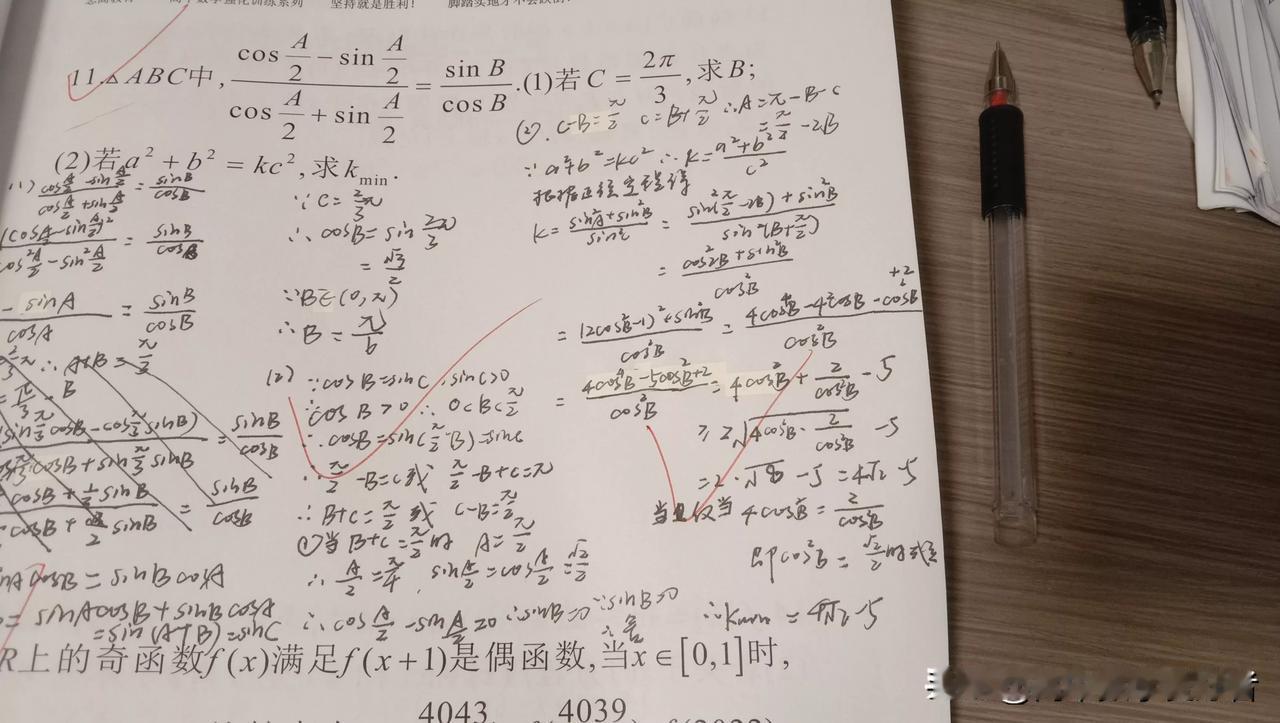 高中数学强化训练系列 坚持就是胜利!
11.△ABC中, (cos A/2 − sin A/2)/(cos A/2 + sin A/2) = sin B/cos B .(1)若C = 2π/3 ,求B;
(2)若a²+b² = kc²,求k_min.
(1) (cos A/2 − sin A/2)/(cos A/2 + sin A/2) = sinB/cosB
(cos A/2 − sin A/2)²/(cos² A/2 − sin² A/2) = sinB/cosB
− sinA/cosA = sinB/cosB
∴ A+B = π/3
= π/3 − B
= sinB/cosB
= sinB/cosB
cosB = sinB cosA
= sinAcosB + sinB cosA
= sin(A+B) = sinC
∵ C = 2/3 π
∴ cosB = sin 2π/3
= √3/2
∵ B∈(0,π)
∴ B = π/6
(2) ∵ cosB = sinC, sinC>0
∴ cosB>0 ∴ 0<B<π/2
∴ cosB = sin(π/2 − B) = sinC
∴ π/2 − B = C 或 π/2 − B + C = π
∴ B+C = π/2 或 C−B = π/2
①当 B+C = π/2 时 A = π/2
∴ A/2 = π/4, sin A/2 = cos A/2 = √2/2
∴ cos A/2 − sin A/2 = 0 ∴ sinB = 0 ∵ sinB>0
∴ 舍
②. C−B = π/2 C = B+π/2 ∴ A = π−B−C
= π/2 − 2B
∵ a²+b² = kc² ∴ k = (a²+b²)/c²
根据正弦定理得
k = (sin²A+sin²B)/sin²C = (sin²(π/2 − 2B) + sin²B)/sin²(B+π/2)
= (cos²2B + sin²B)/cos²B
= ((2cos²B−1)² + sin²B)/cos²B = (4cos⁴B − 4cos²B − cos²B +2)/cos²B
= (4cos⁴B − 5cos²B + 2)/cos²B = 4cos²B + 2/cos²B − 5
≥ 2√(4cos²B · 2/cos²B) − 5
= 2·√8 − 5 = 4√2 − 5
当且仅当 4cos²B = 2/cos²B
即 cos²B = √2/2 时
∴ k_min = 4√2 − 5
R上的奇函数f(x)满足f(x+1)是偶函数,当x∈[0,1]时,
4043 4039